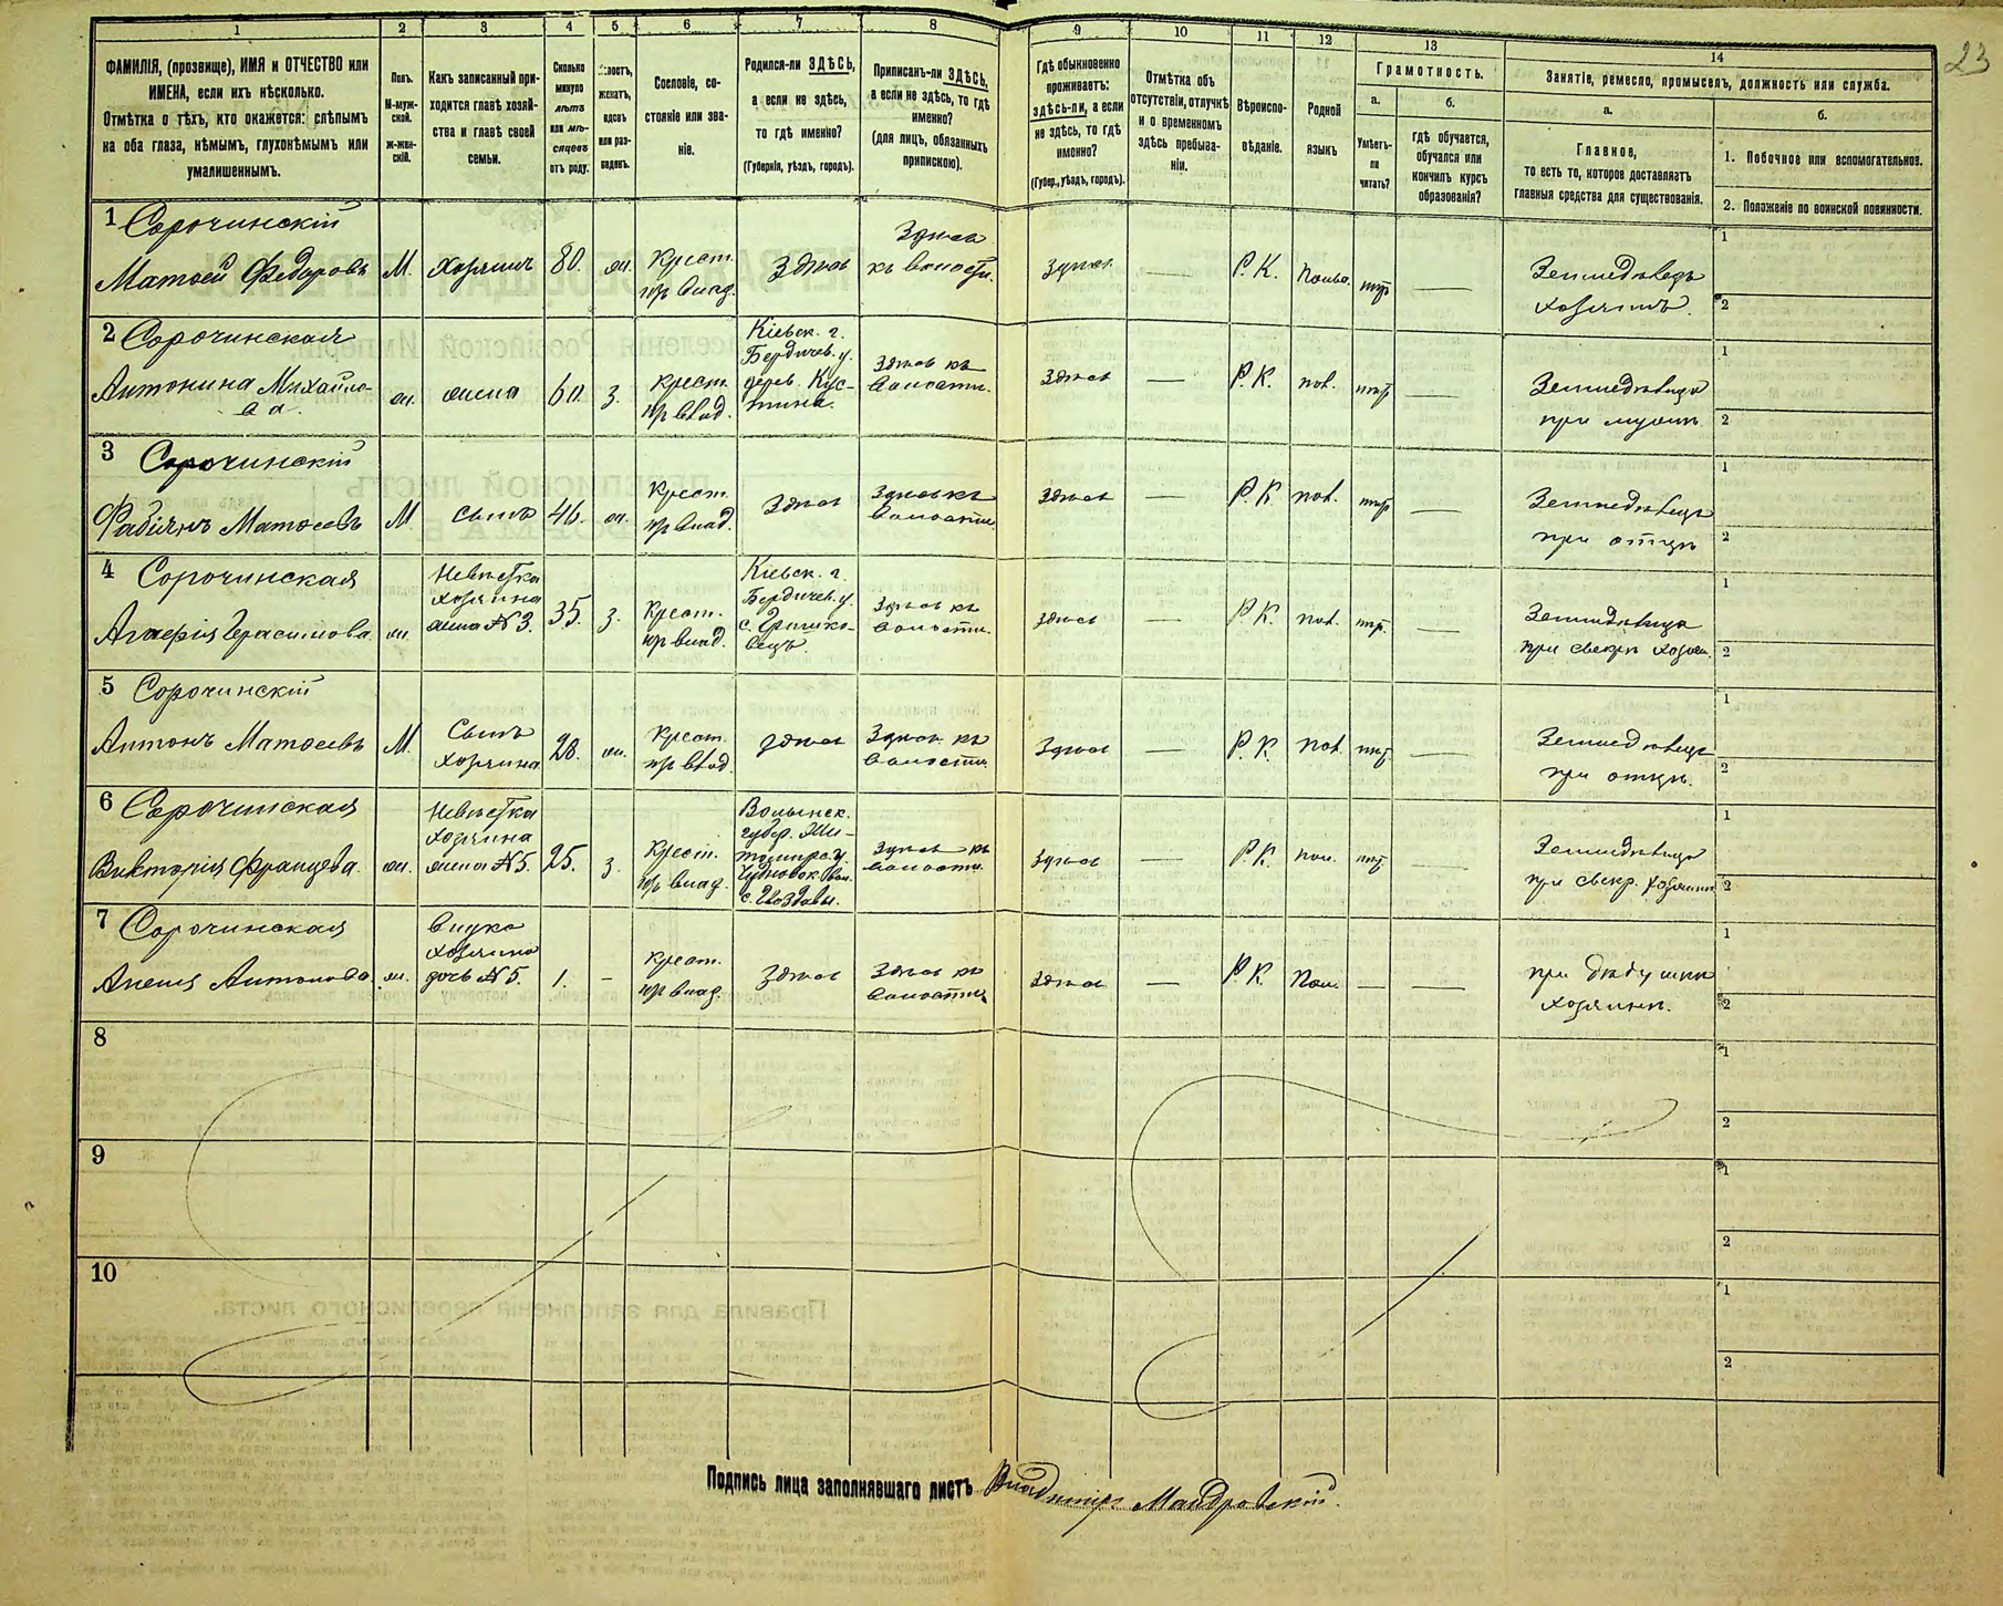 23
1 2 3 4 5 6 7 8 9 10 11 12 13 14
ФАМИЛІЯ, (прозвище), ИМЯ и ОТЧЕСТВО или
ИМЕНА, если ихъ нѣсколько.
Отмѣтка о тѣхъ, кто окажется: слѣпымъ
на оба глаза, нѣмымъ, глухонѣмымъ или
умалишеннымъ.
Полъ.
М-муж-
ской.
Ж-жен-
скій.
Какъ записанный при-
ходится главѣ хозяй-
ства и главѣ своей
семьи.
Сколько
минуло
лѣтъ
или мѣ-
сяцевъ
отъ роду.
холостъ,
женатъ,
вдовъ
или раз-
веденъ.
Сословіе, со-
стояніе или зва-
ніе.
Родился-ли ЗДѢСЬ,
а если не здѣсь,
то гдѣ именно?
(Губернія, уѣздъ, городъ).
Приписанъ-ли ЗДѢСЬ,
а если не здѣсь, то гдѣ
именно?
(для лицъ, обязанныхъ
припискою).
Гдѣ обыкновенно
проживаетъ:
здѣсь-ли, а если
не здѣсь, то гдѣ
именно?
(Губер., уѣздъ, городъ).
Отмѣтка объ
отсутствіи, отлучкѣ
и о временномъ
здѣсь пребыва-
ніи.
Вѣроиспо-
вѣданіе.
Родной
языкъ
Грамотность.
а.
Умѣетъ-
ли
читать?
б.
гдѣ обучается,
обучался или
кончилъ курсъ
образованія?
Занятіе, ремесло, промыселъ, должность или служба.
а.
Главное,
то есть то, которое доставляетъ
главныя средства для существованія.
б.
1. Побочное или вспомогательное.
2. Положеніе по воинской повинности.
1 Сорочинскій
Матвей Федоровъ
М.
хозяинъ
80.
ж.
Крест.
пр владѣ.
Здѣсь
Здѣсь
къ волости.
Здѣсь
—
Р. К.
Польс.
нѣтъ
—
Земледѣлецъ
хозяинъ.
1
2
2 Сорочинская
Антонина Михайло-
ва
ж.
жена
60.
з.
Крест.
пр влад.
Кіевск. г.
Бердичев. у.
дерев. Кус-
тина.
Здѣсь къ
волости.
Здѣсь
—
Р. К.
пол.
нѣтъ
—
Земледѣлица
при мужѣ
1
2
3 Сорочинскій
Фабіянъ Матвеевъ
М
сынъ
46.
ж.
Крест.
пр влад.
Здѣсь
Здѣсь къ
волости
Здѣсь
—
Р. К
пол.
нѣтъ
—
Земледѣлецъ
при отцѣ
1
2
4 Сорочинская
Агафія Герасимова.
ж.
Невѣстка
хозяина
жена №3.
35.
з.
Крест.
пр влад.
Кіевск. г.
Бердичев. у.
с. Гришко-
вецъ.
Здѣсь къ
волости.
Здѣсь
—
Р. К.
пол.
нѣт.
—
Земледѣлица
при свекрѣ хозяи.
1
2
5 Сорочинскій
Антонъ Матвеевъ
М.
Сынъ
хозяина
28.
ж.
Крест.
пр влад
Здѣсь
Здѣсь къ
волости.
Здѣсь
—
Р. К.
пол.
нѣт.
—
Земледѣлецъ
при отцѣ.
1
2
6 Сорочинская
Викторія Францева.
ж.
Невѣстка
хозяина
жена №5.
25.
з.
Крест.
пр влад.
Волынск.
губер. Жи-
томирс. у.
Чудновск. вол.
с. Гвоздавы.
Здѣсь къ
волости.
Здѣсь
—
Р. К.
пол.
нѣт.
—
Земледѣлица
при свекр. хозяинѣ
1
2
7 Сорочинская
Анеля Антонова
ж.
внука
хозяина
дочь №5.
1.
–
Крест.
пр влад.
Здѣсь
Здѣсь къ
волости
Здѣсь
—
Р. К.
Пол.
—
—
при дѣдушкѣ
хозяинѣ.
1
2
8
1
2
9
1
2
10
1
2
Подпись лица заполнявшаго листъ Владиміръ Мандровскій.